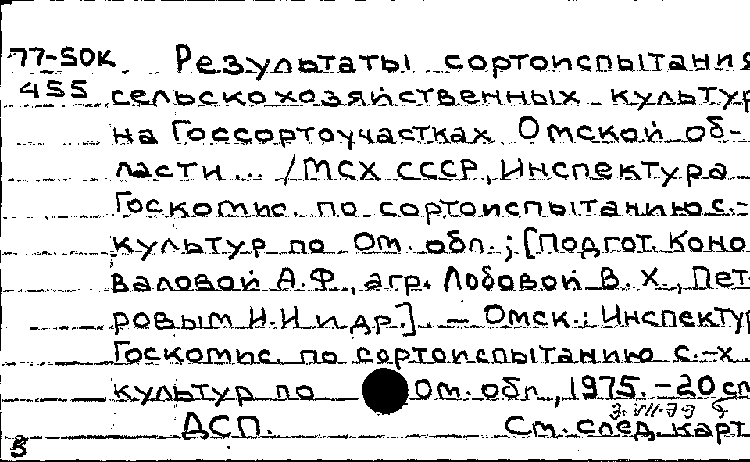 77-50К Результаты сортоиспытания
455 сельскохозяйственных культур
на Госсортоучастках Омской об-
ласти... /МСХ СССР, Инспектура
Госкомис. по сортоиспытанию с.-
культур по Ом. обл.; [Подгот. Коно
валовой А.Ф., агр. Лобовой В.Х., Пет
ровым И.И и др.]. – Омск.: Инспектур
Госкомис. по сортоиспытанию с.-х
культур по Ом. обл., 1975. – 20 сп
ДСП. См. след. карт
Б